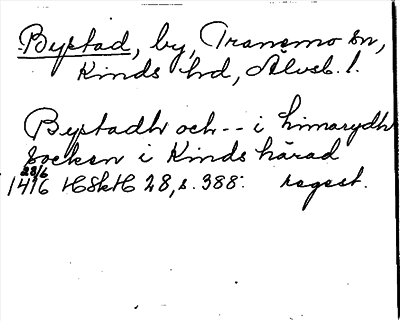 Bystad, by, Tranemo sn,
Kinds hd, Älvsb. l.
Bystadh och -- i himarydh
Socken i Kinds härad
28/6
1416 HSkH 28, s. 388. regest.